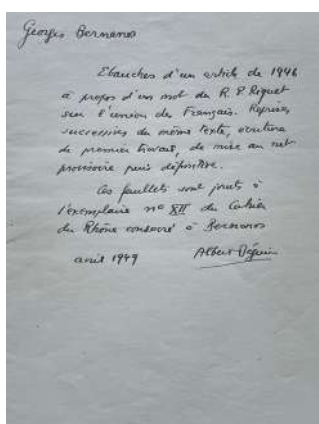 Georges Bernanos
Ebauches d'un article de 1946
à propos d'un mot du R. P. Riquet
sur l'union des Français. Reprises
successives du même texte, écriture
de premier travail, de mise au net
provisoire puis définitive.
Ces feuillets sont joints à
l'exemplaire nº XII du Cahier
du Rhône consacré à Bernanos
avril 1949
Albert Béguin